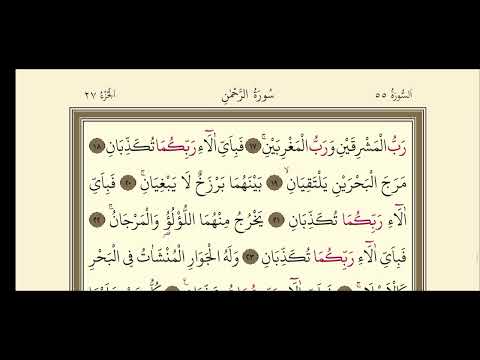 اَلسُّورَةُ ٥٥ سُورَةُ الرَّحْمٰنِ اَلْجُزْءُ ٢٧
رَبُّ الْمَشْرِقَيْنِ وَرَبُّ الْمَغْرِبَيْنِۚ ١٧ فَبِاَيِّ اٰلَٓاءِ رَبِّكُمَا تُكَذِّبَانِ ١٨
مَرَجَ الْبَحْرَيْنِ يَلْتَقِيَانِۙ ١٩ بَيْنَهُمَا بَرْزَخٌ لَا يَبْغِيَانِۚ ٢٠ فَبِاَيِّ
اٰلَٓاءِ رَبِّكُمَا تُكَذِّبَانِ ٢١ يَخْرُجُ مِنْهُمَا اللُّؤْلُؤُ۬ وَالْمَرْجَانُۚ ٢٢
فَبِاَيِّ اٰلَٓاءِ رَبِّكُمَا تُكَذِّبَانِ ٢٣ وَلَهُ الْجَوَارِ الْمُنْشَاٰتُ فِي الْبَحْرِ